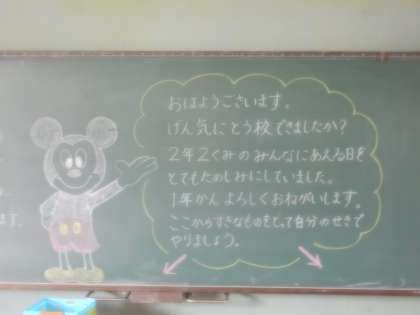 おはようございます。
げん気にとう校できましたか？
2年2くみのみんなにあえる日を
とてもたのしみにしていました。
1年かんよろしくおねがいします。
ここからすきなものをとって自分のせきで
やりましょう。
ます。